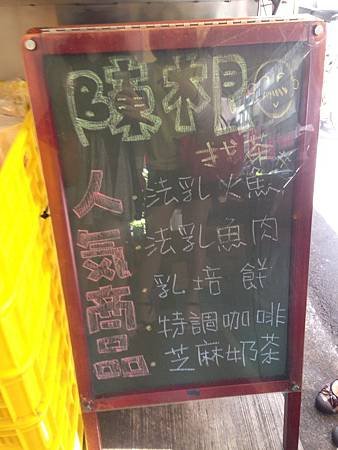 人氣商品
找茶
法乳火魚
法乳魚肉
乳培餅
特調咖啡
芝麻奶茶